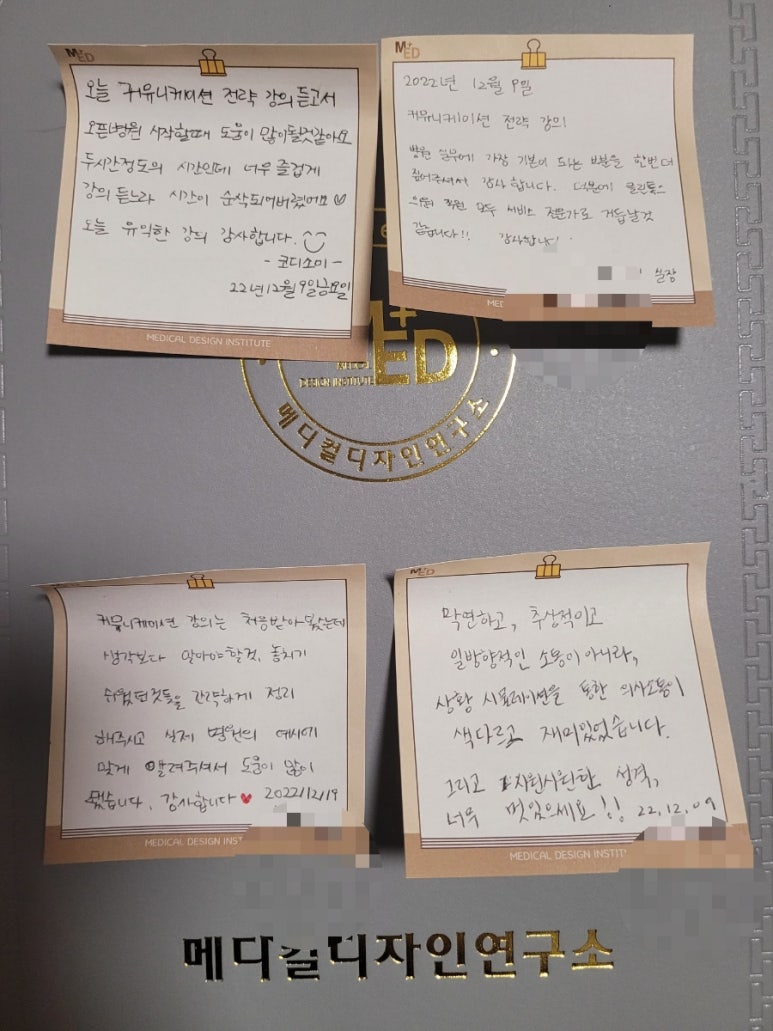 M+ED
오늘 커뮤니케이션 전략 강의 듣고서
오픈병원 시작할때 도움이 많이될것같아요
두시간정도의 시간인데 너무 즐겁게
강의 듣느라 시간이 순삭되어버렸어요
오늘 유익한 강의 감사합니다.
- 코디소미 -
22년12월9일금요일
MEDICAL DESIGN INSTITUTE
M+ED
2022년 12월 9일
커뮤니케이션 전략 강의
병원 실무에 가장 기본이 되는 부분을 한번더
짚어주셔서 감사합니다. 덕분에
의원 직원 모두 서비스 전문가로 거듭날것
같습니다!! 감사합니다.
실장
ME
ED
DESIGN INSTITUTE
메디컬디자인연구소
커뮤니케이션 강의는 처음받아봤는데
생각보다 알아야할것, 놓치기
쉬웠던것들을 간략하게 정리
해주시고 실제 병원의 예시에
맞게 알려주셔서 도움이 많이
됐습니다. 감사합니다 2022/12/19
MEDICAL DESIGN INST
M+ED
막연하고, 추상적이고
일방향적인 소통이 아니라,
상황 시뮬레이션을 통한 의사소통이
색다르고 재미있었습니다.
그리고 시원시원한 성격,
너무 멋있으세요!! 22.12.09
MEDICAL DESIGN INSTIT
메디컬디자인연구소